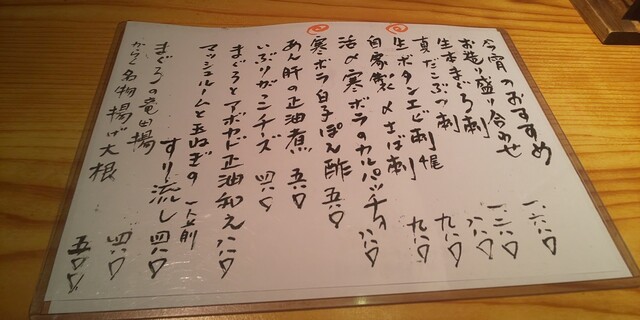 今宵のおすすめ
お造り盛り合わせ 一、六八〇
生本まぐろ刺 一、二八〇
真だこぶつ刺 八八〇
生ボタンエビ刺 二尾 九八〇
自家製〆さば刺 九八〇
活〆寒ボラのカルパッチョ 八八〇
寒ボラ白子ぽん酢 五八〇
あん肝の正油煮 五八〇
いぶりがっこチーズ 四八〇
まぐろとアボカド正油和え 八八〇
マッシュルームと玉ねぎの
すり流し 一人前 四八〇
まぐろの竜田揚 四八〇
がらく名物揚げ大根 五八〇